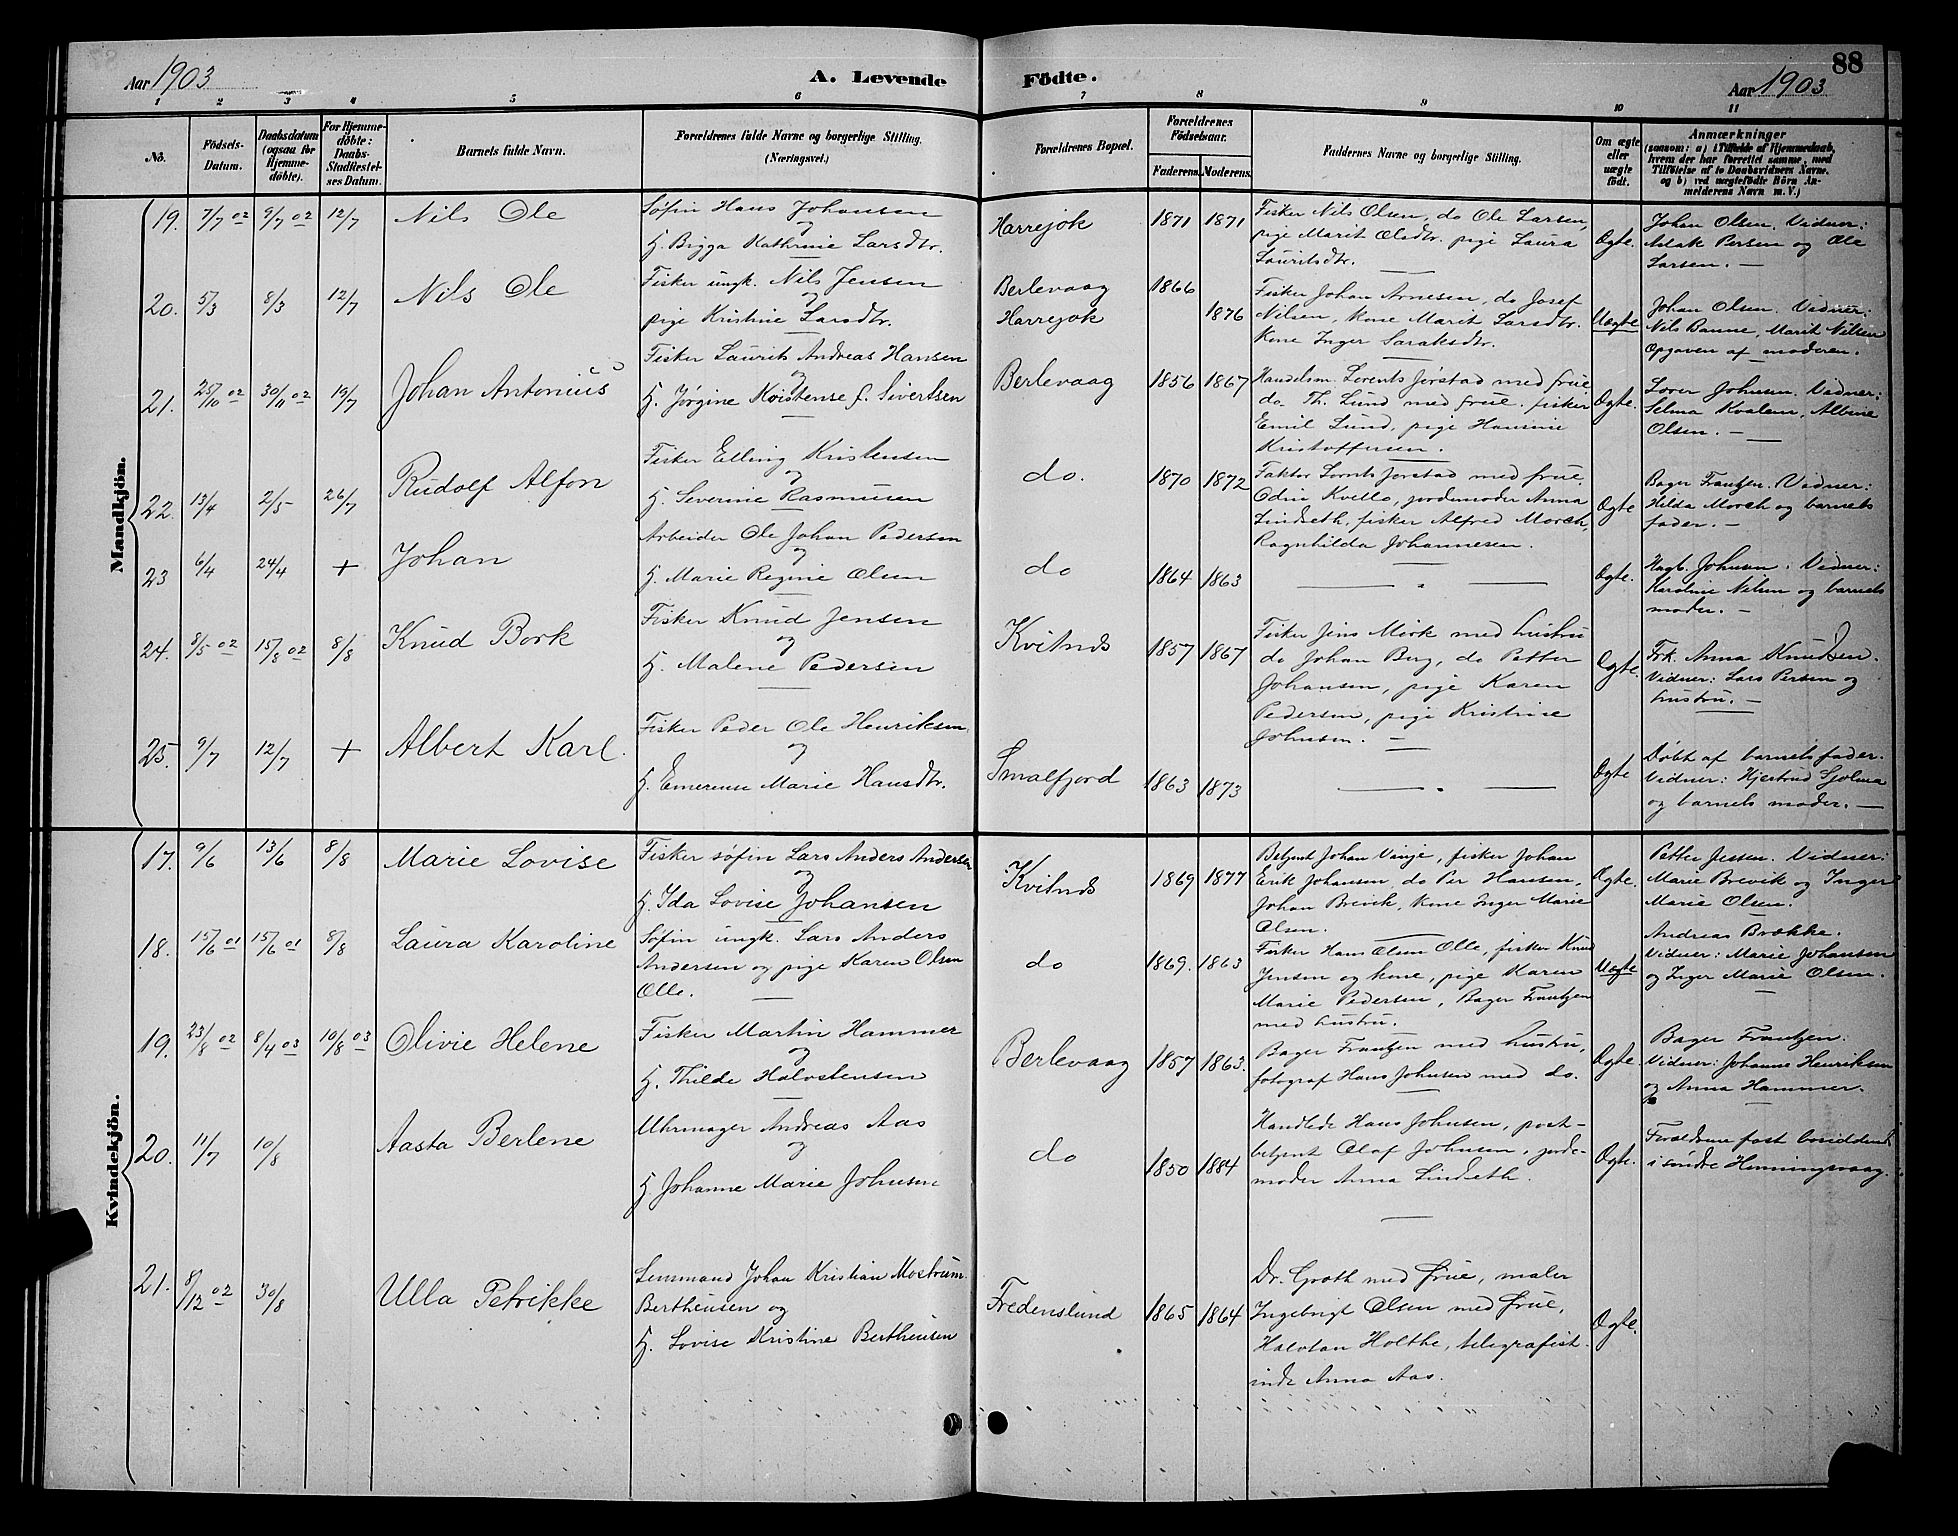 Aar 1903
A. Levende Födte.
Aar 1903
88
1 2 3 4 5 6 7 8 9 10 11
No.
Födsels-
Datum.
Daabsdatum
(ogsaa for
Hjemme-
döbte).
For Hjemme-
döbte:
Daabs-
Stadfæstel-
ses Datum.
Barnets fulde Navn.
Forældrenes fulde Navne og borgerlige Stilling.
(Næringsvei.)
Forældrenes Bopæl.
Forældrenes
Födselsaar.
Faderens. Moderens.
Faddernes Navne og borgerlige Stilling.
Om ægte
eller
uægte
födt.
Anmærkninger
(saasom: a) i Tilfælde af Hjemmedaab,
hvem der har forrettet samme, med
Tilföielse af to Daabsvidners Navne.
og b) ved uægtefödte Börn An-
melderens Navn m. V.)
Mandkjön.
19. 7/7 02 9/7 02 12/7 Nils Ole
Søfin Hans Johansen
og
H. Bigga Kathrine Larsdtr.
Harrejok 1871 1871
Fisker Nils Olsen, do Ole Larsen,
pige Marit Olsdtr. pige Laura
Lauritsdtr.
Ægte.
Johan Olsen. Vidner:
Aslak Persen og Ole
Larsen.
20. 5/3 8/3 12/7 Nils Ole
Fisker ungk. Nils Jensen
og
pige Kristine Larsdtr.
Berlevaag 1866
Harrejok 1876
Fisker Johan Arnesen, do Josef
Nilsen, kone Marit Larsdtr.
Kone Inger Saraksdtr.
Uægte
Johan Olsen. Vidner:
Nils Banne, Marit Nilsen
Opgaven af moderen.
21. 25/10 02 30/11 02 19/7 Johan Antonius
Fisker Laurits Andreas Hansen
og
H. Jørgine Kristense f. Sivertsen
Berlevaag 1856 1867
Handelsm. Lorents Jørstad med frue,
do. Th. Lund med frue. fisker
Emil Lund, pige Hansine
Kristoffersen.
Ægte.
Lærer Johnsen. Vidner:
Selma Kvalem, Albine
Olsen.
22. 13/4 2/5 26/7 Rudolf Alfon
Fisker Elling Kristensen
og
H. Severine Rasmusen
do. 1870 1872
Faktor Lornts Jørstad med frue,
Odin Kvello, jordemoder Anna
Lindseth, fisker Alfred Morch,
Ragnhilda Johannesen.
Ægte
Bager Frantzen. Vidner:
Hilda Morch og barnets
fader.
23 6/4 24/4 + Johan
Arbeider Ole Johan Pedersen
og
H. Marie Regine Olsen
do 1864 1863
Ægte.
Hagb. Johnsen. Vidner:
Karoline Nilsen og barnets
moder.
24. 8/5 02 15/8 02 8/8 Knud Bork
Fisker Knud Jensen
og
H. Malene Pedersen
Kvitnes 1857 1867
Fisker Jens Mörk med hustru
do Johan Berg, do Petter
Johansen, pige Karen
Pedersen, pige Kristine
Johnsen.
Ægte.
Frk. Anna Knudsen.
Vidner: Lars Persen og
hustru.
25. 9/7 12/7 + Albert Karl.
Fisker Peder Ole Henriksen
og
H. Emerense Marie Hansdtr.
Smalfjord 1863 1873
Ægte
Döbt af barnets fader.
Vidner: Hjertrud Sjolma
og barnets moder.
Kvindekjön.
17. 9/6 13/6 8/8 Marie Lovise
Fisker søfin Lars Anders Andersen
og
H. Ida Lovise Johansen
Kvitnes 1869 1877
Betjent Johan Vinje, fisker Johan
Erik Johansen, do Per Hansen,
Johan Brevik, kone Inger Marie
Olsen.
Ægte.
Petter Jessen. Vidner:
Marie Brevik og Inger
Marie Olsen.
18. 15/6 01 15/6 01 8/8 Laura Karoline
Søfin ungk. Lars Anders
Andersen og pige Karen Olsen
Olle.
do 1869. 1863
Fisker Hans Olsen Olle, fisker Knud
Jensen og kone, pige Karen
Marie Pedersen, Bager Frantzen
med hustru.
Uægte
Andreas Brække.
Vidner: Marie Johansen
og Inger Marie Olsen.
19. 23/8 02 8/4 03 10/8 03 Olivie Helene
Fisker Martin Hammer
og
H. Thilde Halvstensen
Berlevaag 1857 1863.
Bager Frantzen med hustru,
fotograf Hans Johnsen med do.
Ægte.
Bager Frantzen.
Vidner: Johanne Henriksen
og Anna Hammer.
20. 11/7 10/8 Aasta Berlene
Uhrmager Andreas Aas
og
H Johanne Marie Johnsen
do 1850 1884
Handlede Hans Johnsen, post-
betjent Olaf Johnsen, jorde-
moder Anna Lindseth.
Ægte.
Forældrene fast bosiddende
i söndre Henningsvaag.
21. 8/12 02 30/8 Ulla Petrikke
Lensmand Johan Kristian Mostrum
Bertheusen og
H. Lovise Kristine Bertheusen
Fredenslund 1865 1864
Dr. Groth med Frue, maler
Ingebrigt Olsen med Frue,
Halvtan Holthe, telegrafist-
inde Anna Aas.
Ægte.